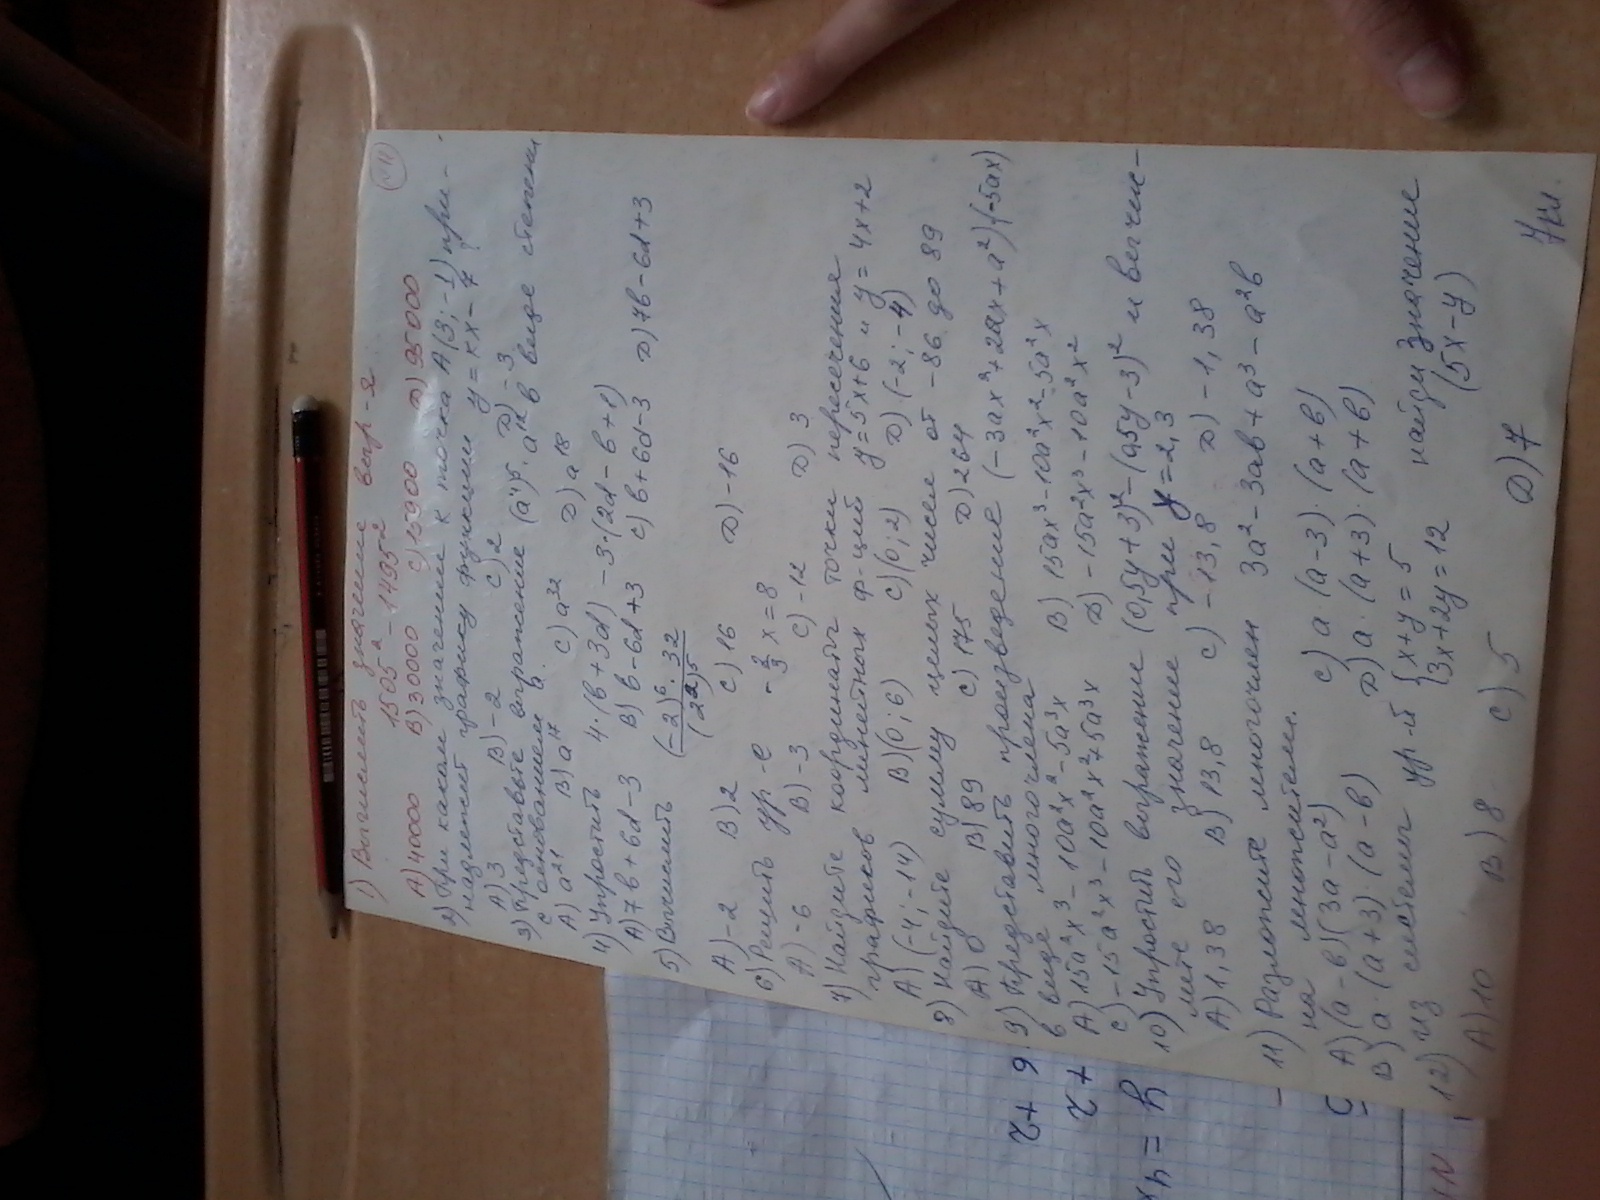 №11
1) Вычислить значение выр-я
1505² - 1495²
A) 40000 B) 30000 C) 15900 D) 95000
2) При каком значении к точка A(3; -1) при-
надлежит графику функции y = кx - 7
A) 3 B) -2 C) 2 D) -3
3) Представьте выражение (a⁴)⁵ · a¹² в виде степени
с основанием a.
A) a²¹ B) a¹⁷ C) a³² D) a¹⁸
4) Упростить 4·(b + 3d) - 3·(2d - b + 1)
A) 7b + 6d - 3 B) b - 6d + 3 C) b + 6d - 3 D) 7b - 6d + 3
5) Вычислить (-2)⁶ · 32 / (2²)⁵
A) -2 B) 2 C) 16 D) -16
6) Решить ур-е -2/3 x = 8
A) -6 B) -3 C) -12 D) 3
7) Найдите координаты точки пересечения
графиков линейных ф-ций y = 5x + 6 и y = 4x + 2
A) (-4; -14) B) (0; 6) C) (0; 2) D) (-2; -4)
8) Найдите сумму целых чисел от -86 до 89
A) 0 B) 89 C) 175 D) 264
9) Представить произведение (-3ax² + 2ax + a²)(-5ax)
в виде многочлена
A) 15a²x³ - 10a²x² - 5a³x B) 15ax³ - 10a²x² - 5a²x
C) -15a²x³ - 10a²x² + 5a³x D) -15a²x³ - 10a²x²
10) Упростить выражение (0,5y + 3)² - (0,5y - 3)² и вычис-
лите его значение при y = 2,3
A) 1,38 B) 13,8 C) -13,8 D) -1,38
11) Разложите многочлен 3a² - 3ab + a³ - a²b
на множители.
A) (a - b)(3a - a²) C) a·(a - 3)·(a + b)
B) a·(a + 3)·(a - b) D) a·(a + 3)·(a + b)
12) Из системы ур-й { x + y = 5 найди значение
3x + 2y = 12 (5x - y)
A) 10 B) 8 C) 5 D) 7
7 кл.